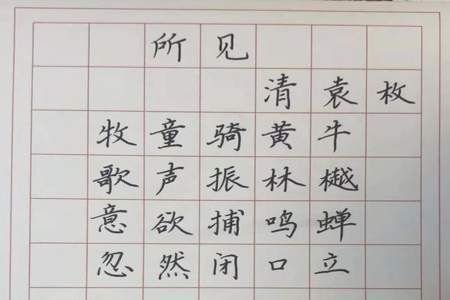 所见
清 袁枚
牧童骑黄牛
歌声振林樾
意欲捕鸣蝉
忽然闭口立